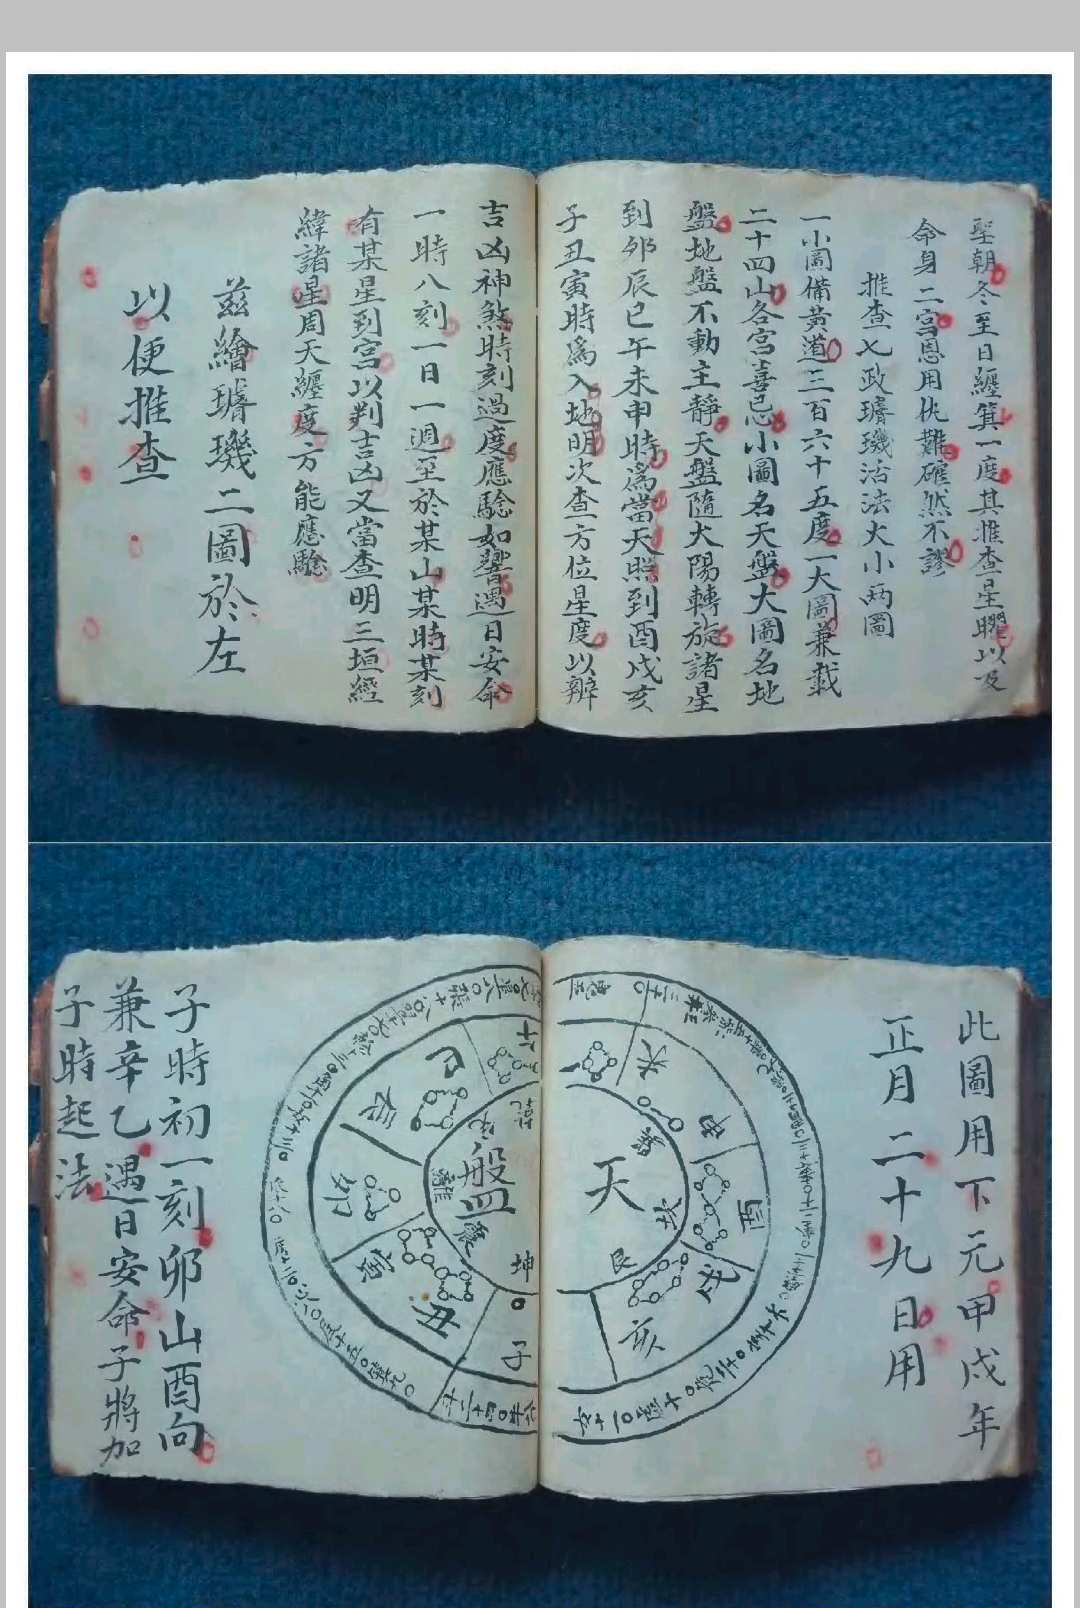 聖朝冬至日纏箕一度其推查星曜以及
命身二宮恩用仇難確然不謬
推查七政璿璣治法大小兩圖
一小圖備黃道三百六十五度一大圖兼載
二十四山各宮喜忌小圖名天盤大圖名地
盤地盤不動主靜天盤隨太陽轉旋諸星
到卯辰巳午未申時為當天照到酉戌亥
子丑寅時為入地明次查方位星度以辨
吉凶神煞時刻過度應驗如響遇日安命
一時八刻一日一週至於某山某時某刻
有某星到宮以判吉凶又當查明三垣經
緯諸星周天纏度方能應驗
茲繪璿璣二圖於左
以便推查
此圖用下元甲戌年
正月二十九日用
天
盤
艮
坤
震
離
乾
未
申
酉
戌
亥
子
丑
寅
卯
辰
巳
午
子時初一刻卯山酉向
兼辛乙遇日安命子將加
子時起法